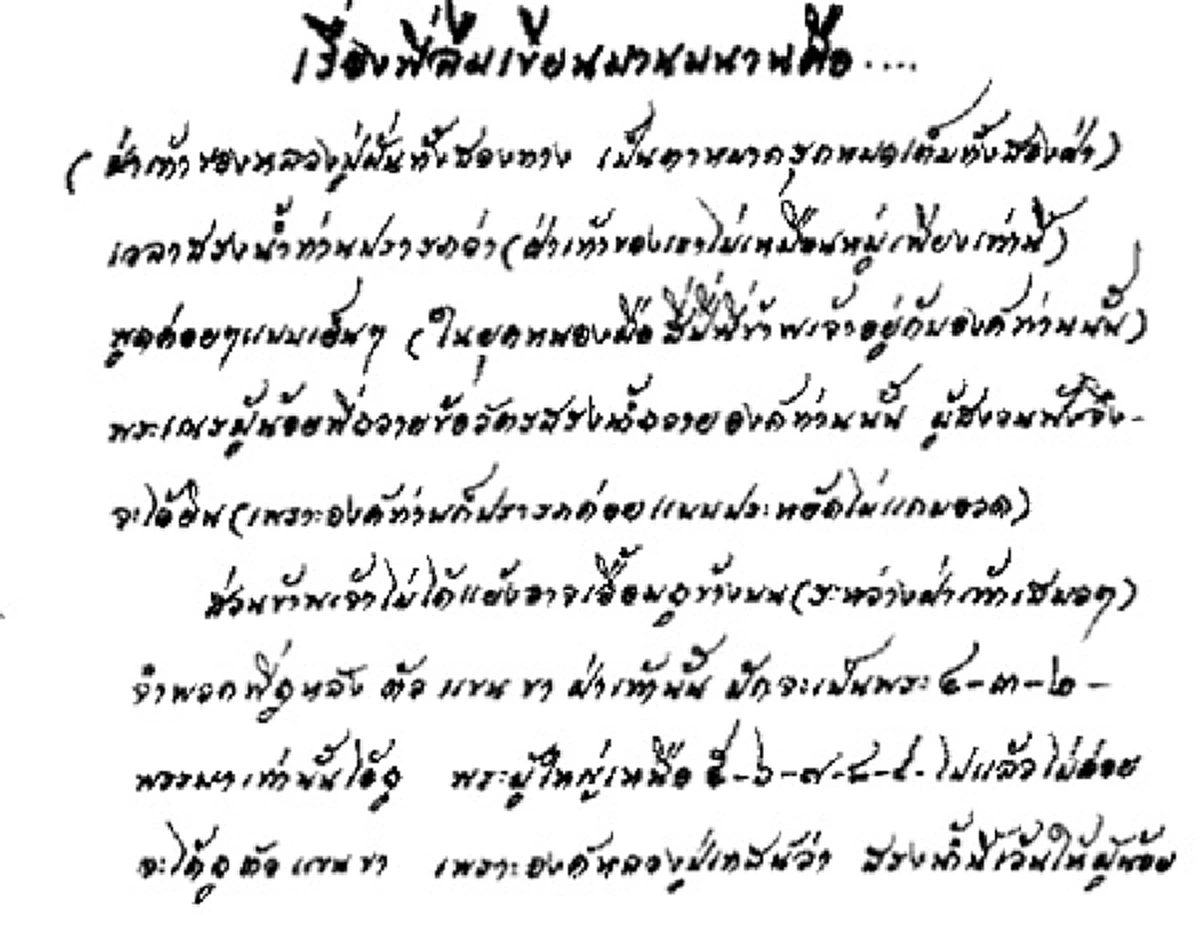 เรื่องที่ลืมเขียนมานมนานคือ....
(ฝ่าเท้าของหลวงปู่มั่นทั้งสองทาง เป็นตาหมากรุกหมดเต็มทั้งสองฝ่า)
เวลาสรงน้ำท่านปรารภว่า (ฝ่าเท้าของเราไม่เหมือนหมู่เพียงเท่านี้)
พูดค่อยๆแบบเย็นๆ (ในยุคหนองผือ สี่ปีที่ข้าพเจ้าอยู่กับองค์ท่านนั้น)
พระเณรผู้น้อยที่ถวายข้อวัตรสรงน้ำถวายองค์ท่านนั้น ผู้สงวนฟังจึง-
จะได้ยิน (เพราะองค์ท่านก็ปรารภค่อยแบบประหยัดไม่แกมอวด)
ส่วนข้าพเจ้าไม่ได้แย้งอาจเอื้อมถูข้างบน (ระหว่างฝ่าเท้าเสมอๆ)
จำพวกที่ถูหลัง ตัว แขน ขา ฝ่าเท้านั้น มักจะเป็นพระ ๔-๓-๒-
พรรษาเท่านั้นได้ถู พระผู้ใหญ่เหนือ ๕-๖-๗-๘-๙- ไปแล้วไม่ค่อย
จะได้ถูตัว แขน ขา เพราะองค์หลวงปู่เทศน์ว่า สรงน้ำนี้เว้นให้ผู้น้อย